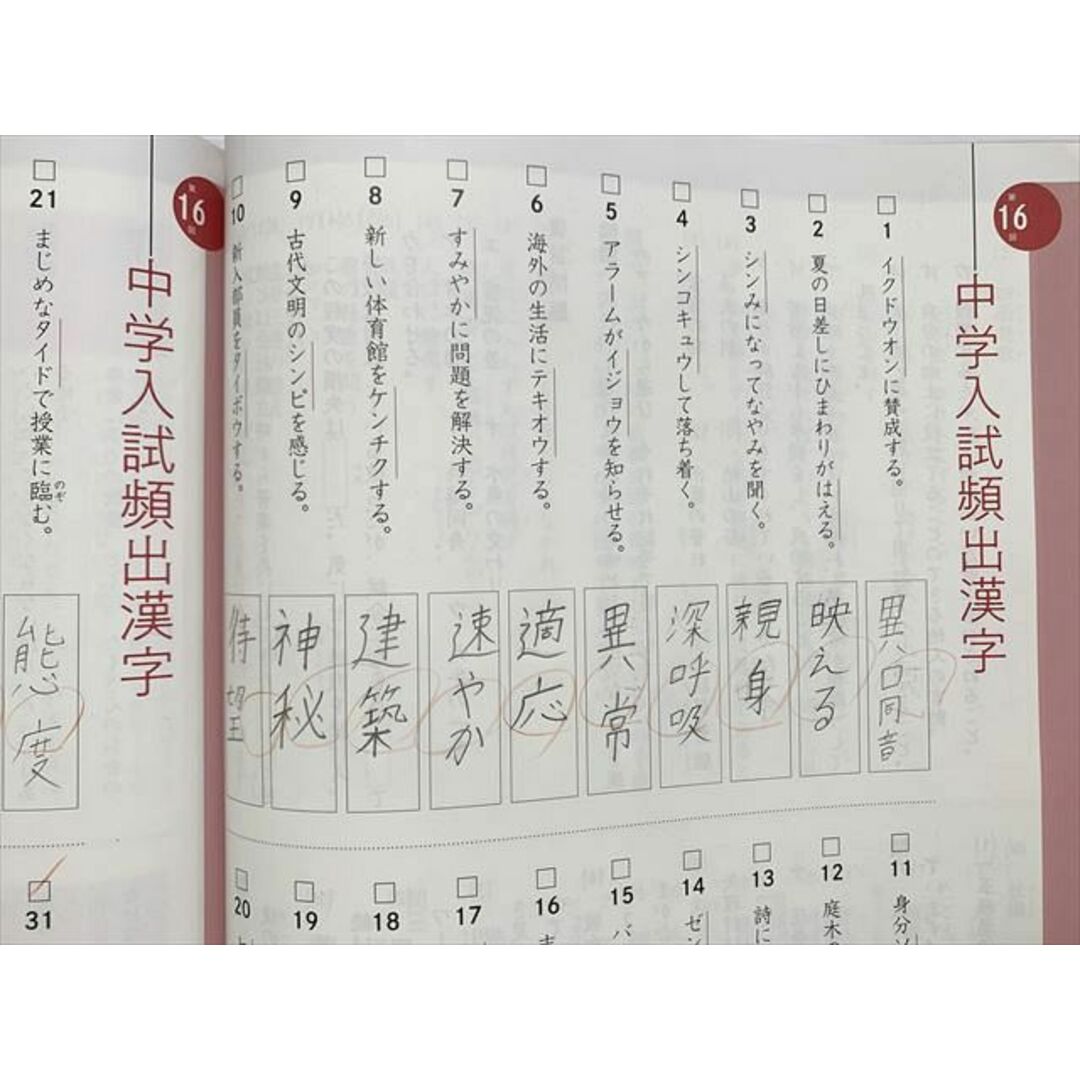 第16回
中学入試頻出漢字
1 イクドウオンに賛成する。
異口同音
2 夏の日差しにひまわりがはえる。
映える
3 シンみになってなやみを聞く。
親身
4 シンコキュウして落ち着く。
深呼吸
5 アラームがイジョウを知らせる。
異常
6 海外の生活にテキオウする。
適応
7 すみやかに問題を解決する。
速やか
8 新しい体育館をケンチクする。
建築
9 古代文明のシンピを感じる。
神秘
10 新入部員をタイボウする。
待望
11 身分
12 庭木の
13 詩に
14 ゼン
15 バ
16
17
18
19
20
第16回
中学入試頻出漢字
21 まじめなタイドで授業に臨(のぞ)む。
態度
31